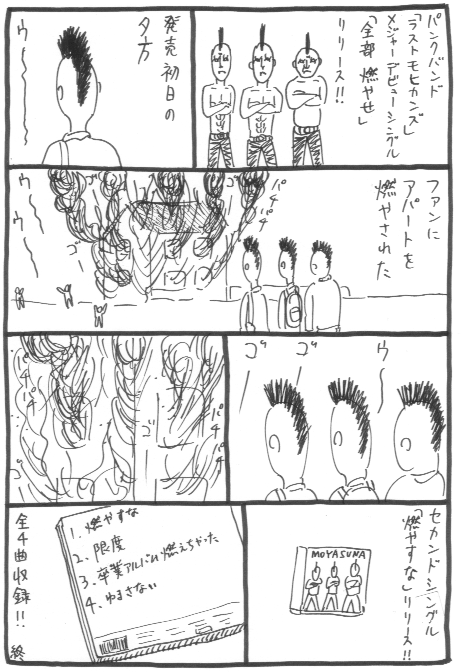 パンクバンド
「ラストモヒカンズ」
メジャーデビューシングル
「全部燃やせ」
リリース!!
発売初日の
夕方
ウ〜
ファンに
アパートを
燃やされた
パチ
パチ
ゴ
ゴ
ウ〜
ウ〜
ウ〜
ゴ
ゴ
パチ
パチ
ゴ
パチ
パチ
ゴ
セカンドシングル
「燃やすな」リリース!!
MOYASUNA
1. 燃やすな
2. 限度
3. 卒業アルバム燃えちゃった
4. ゆるさない
全4曲収録!!
終